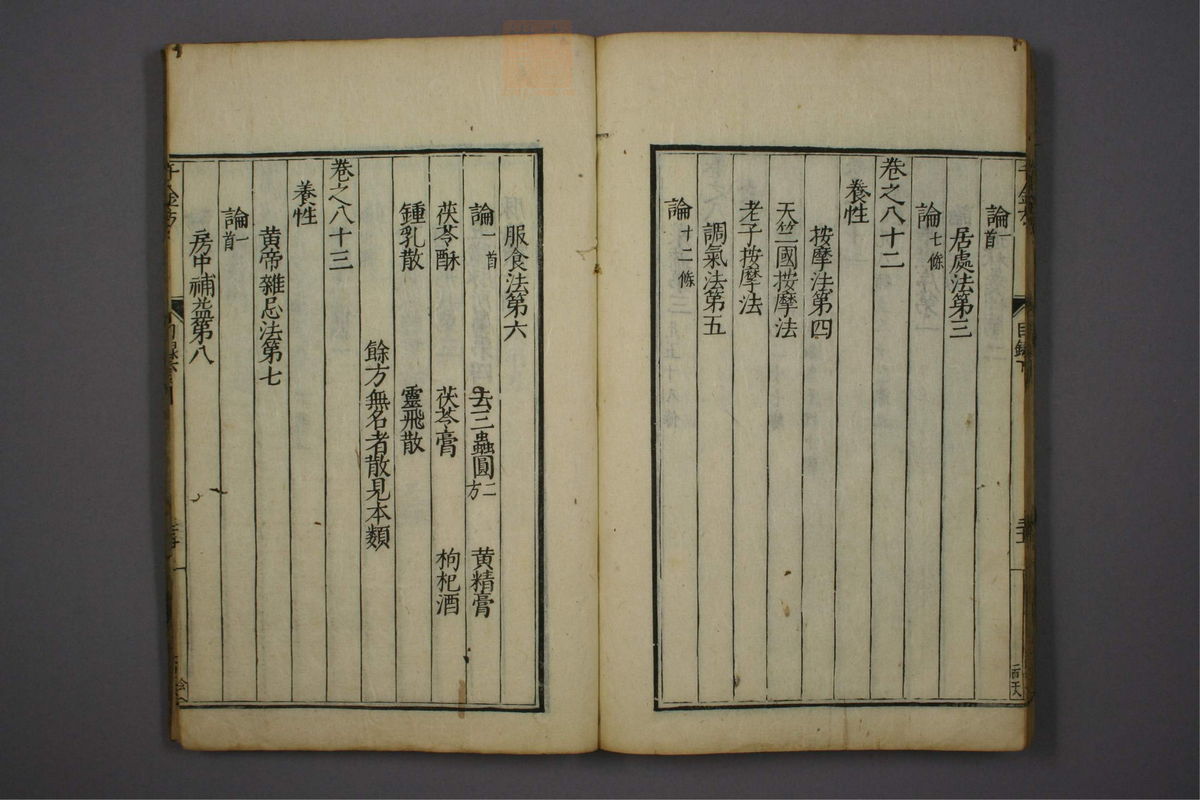 論一首
居處法第三
論七條
卷之八十二
養性
按摩法第四
天竺國按摩法
老子按摩法
調氣法第五
論十二條
服食法第六
論一首 去三蟲圓二方 黄精膏
茯苓酥 茯苓膏 枸杞酒
鍾乳散 靈飛散
餘方無名者散見本類
卷之八十三
養性
黄帝雜忌法第七
論一首
房中補益第八
千金方
目録下